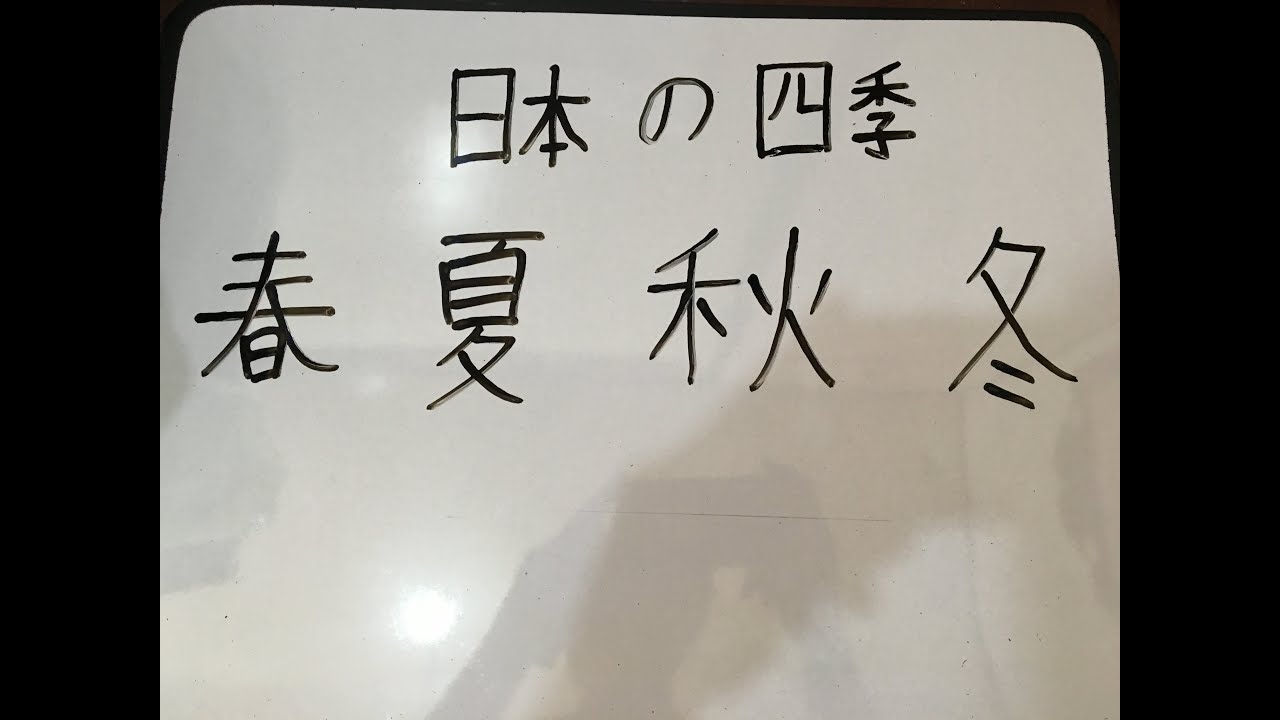 日本の四季
春 夏 秋 冬